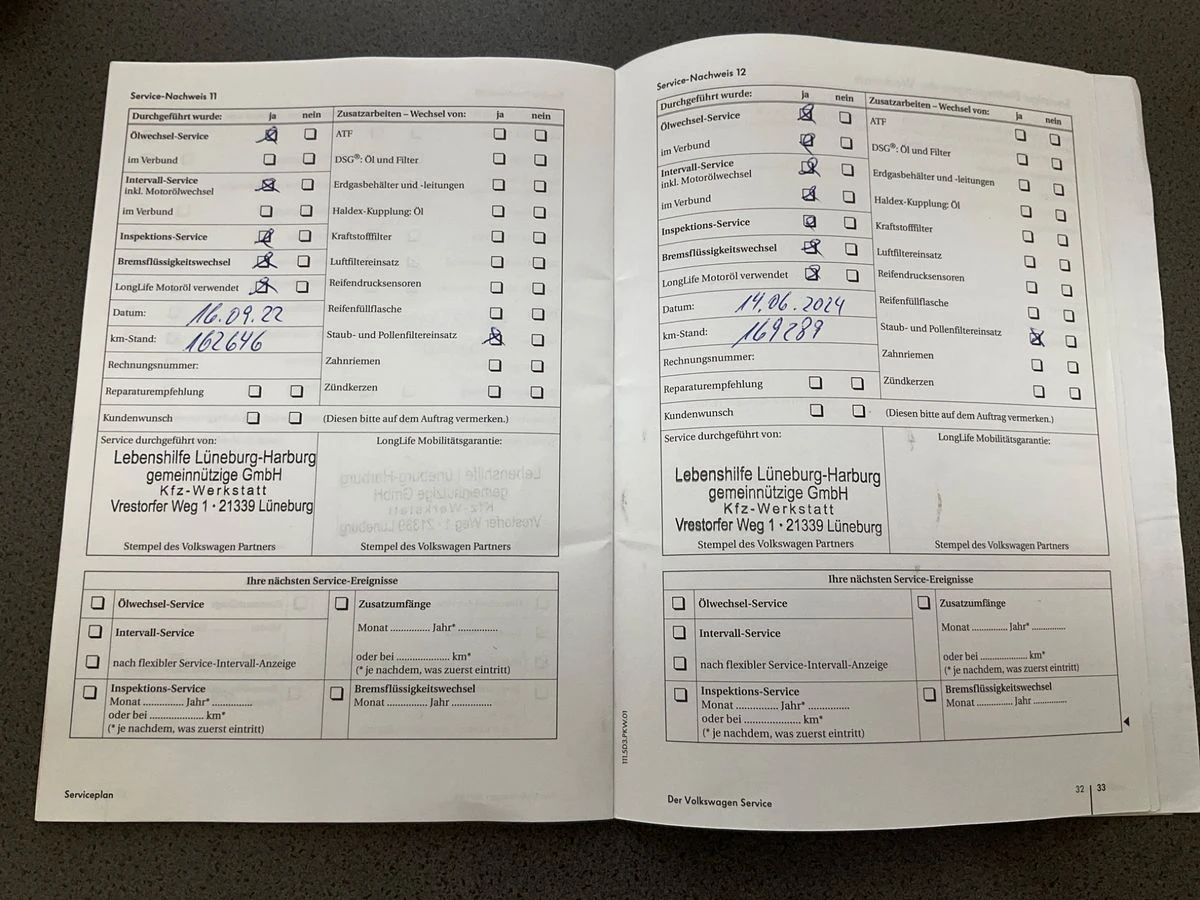 Service-Nachweis 11
Durchgeführt wurde: ja nein
Ölwechsel-Service
im Verbund
Intervall-Service
inkl. Motorölwechsel
im Verbund
Inspektions-Service
Bremsflüssigkeitswechsel
LongLife Motoröl verwendet
Datum: 16.09.22
km-Stand: 162646
Rechnungsnummer:
Reparaturempfehlung
Kundenwunsch
Zusatzarbeiten – Wechsel von: ja nein
ATF
DSG®: Öl und Filter
Erdgasbehälter und -leitungen
Haldex-Kupplung: Öl
Kraftstofffilter
Luftfiltereinsatz
Reifendrucksensoren
Reifenfüllflasche
Staub- und Pollenfiltereinsatz
Zahnriemen
Zündkerzen
(Diesen bitte auf dem Auftrag vermerken.)
Service durchgeführt von:
Lebenshilfe Lüneburg-Harburg
gemeinnützige GmbH
Kfz-Werkstatt
Vrestorfer Weg 1 · 21339 Lüneburg
Stempel des Volkswagen Partners
LongLife Mobilitätsgarantie:
Stempel des Volkswagen Partners
Ihre nächsten Service-Ereignisse
Ölwechsel-Service
Intervall-Service
nach flexibler Service-Intervall-Anzeige
Inspektions-Service
Monat ............ Jahr* ............
oder bei .................... km*
(* je nachdem, was zuerst eintritt)
Zusatzumfänge
Monat ............ Jahr* ............
oder bei .................... km*
(* je nachdem, was zuerst eintritt)
Bremsflüssigkeitswechsel
Monat ............ Jahr ............
Serviceplan
Service-Nachweis 12
Durchgeführt wurde: ja nein
Ölwechsel-Service
im Verbund
Intervall-Service
inkl. Motorölwechsel
im Verbund
Inspektions-Service
Bremsflüssigkeitswechsel
LongLife Motoröl verwendet
Datum: 14.06.2024
km-Stand: 169289
Rechnungsnummer:
Reparaturempfehlung
Kundenwunsch
Zusatzarbeiten – Wechsel von: ja nein
ATF
DSG®: Öl und Filter
Erdgasbehälter und -leitungen
Haldex-Kupplung: Öl
Kraftstofffilter
Luftfiltereinsatz
Reifendrucksensoren
Reifenfüllflasche
Staub- und Pollenfiltereinsatz
Zahnriemen
Zündkerzen
(Diesen bitte auf dem Auftrag vermerken.)
Service durchgeführt von:
Lebenshilfe Lüneburg-Harburg
gemeinnützige GmbH
Kfz-Werkstatt
Vrestorfer Weg 1 · 21339 Lüneburg
Stempel des Volkswagen Partners
LongLife Mobilitätsgarantie:
Stempel des Volkswagen Partners
Ihre nächsten Service-Ereignisse
Ölwechsel-Service
Intervall-Service
nach flexibler Service-Intervall-Anzeige
Inspektions-Service
Monat ............ Jahr* ............
oder bei .................... km*
(* je nachdem, was zuerst eintritt)
Zusatzumfänge
Monat ............ Jahr* ............
oder bei .................... km*
(* je nachdem, was zuerst eintritt)
Bremsflüssigkeitswechsel
Monat ............ Jahr ............
111.5D3.PKW.01
Der Volkswagen Service
32 | 33